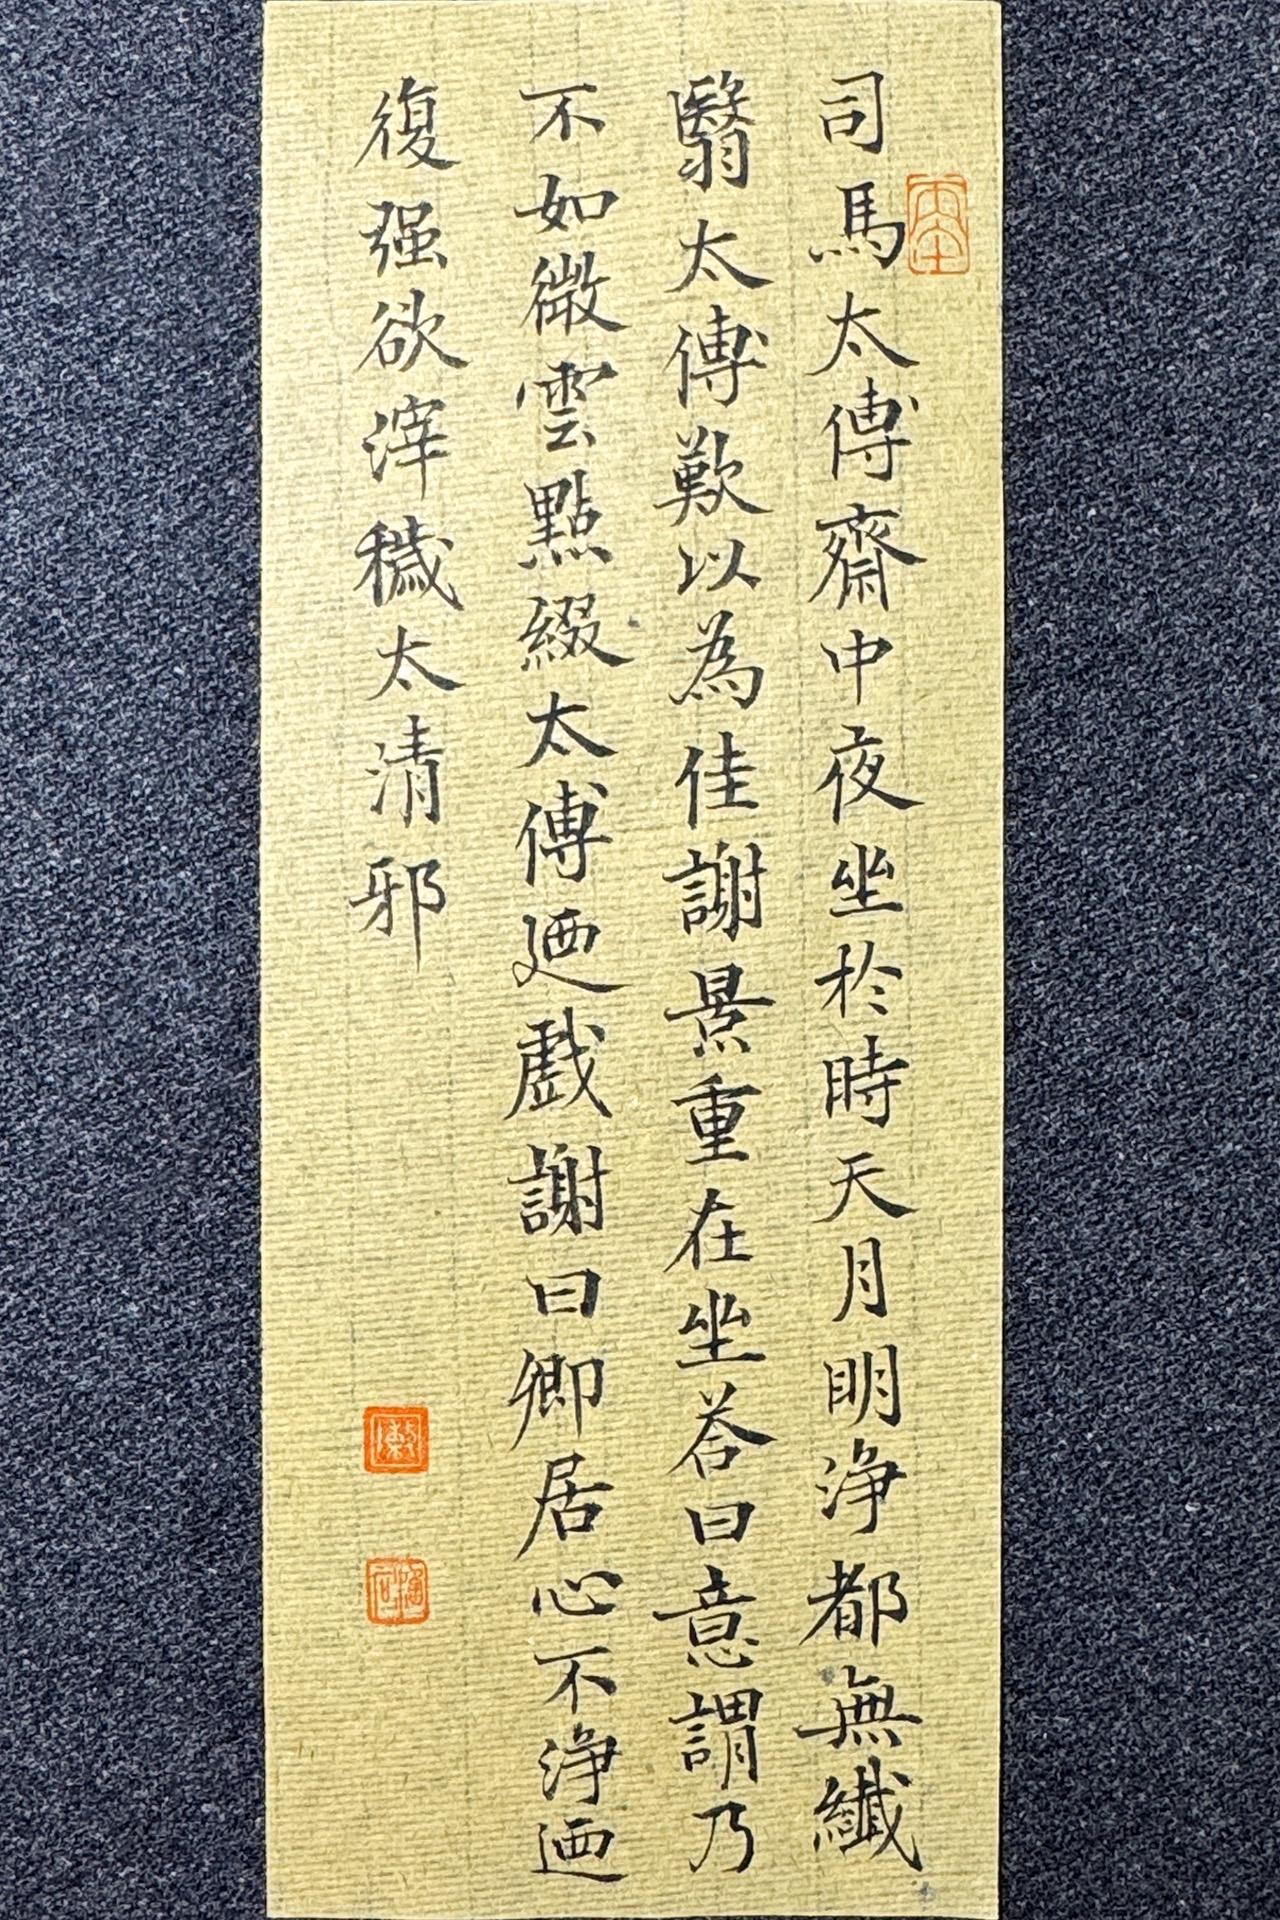 司馬太傅齋中夜坐於時天月明淨都無纖
翳太傅歎以為佳謝景重在坐荅曰意謂乃
不如微雲點綴太傅廼戲謝曰卿居心不淨廼
復强欲滓穢太清邪